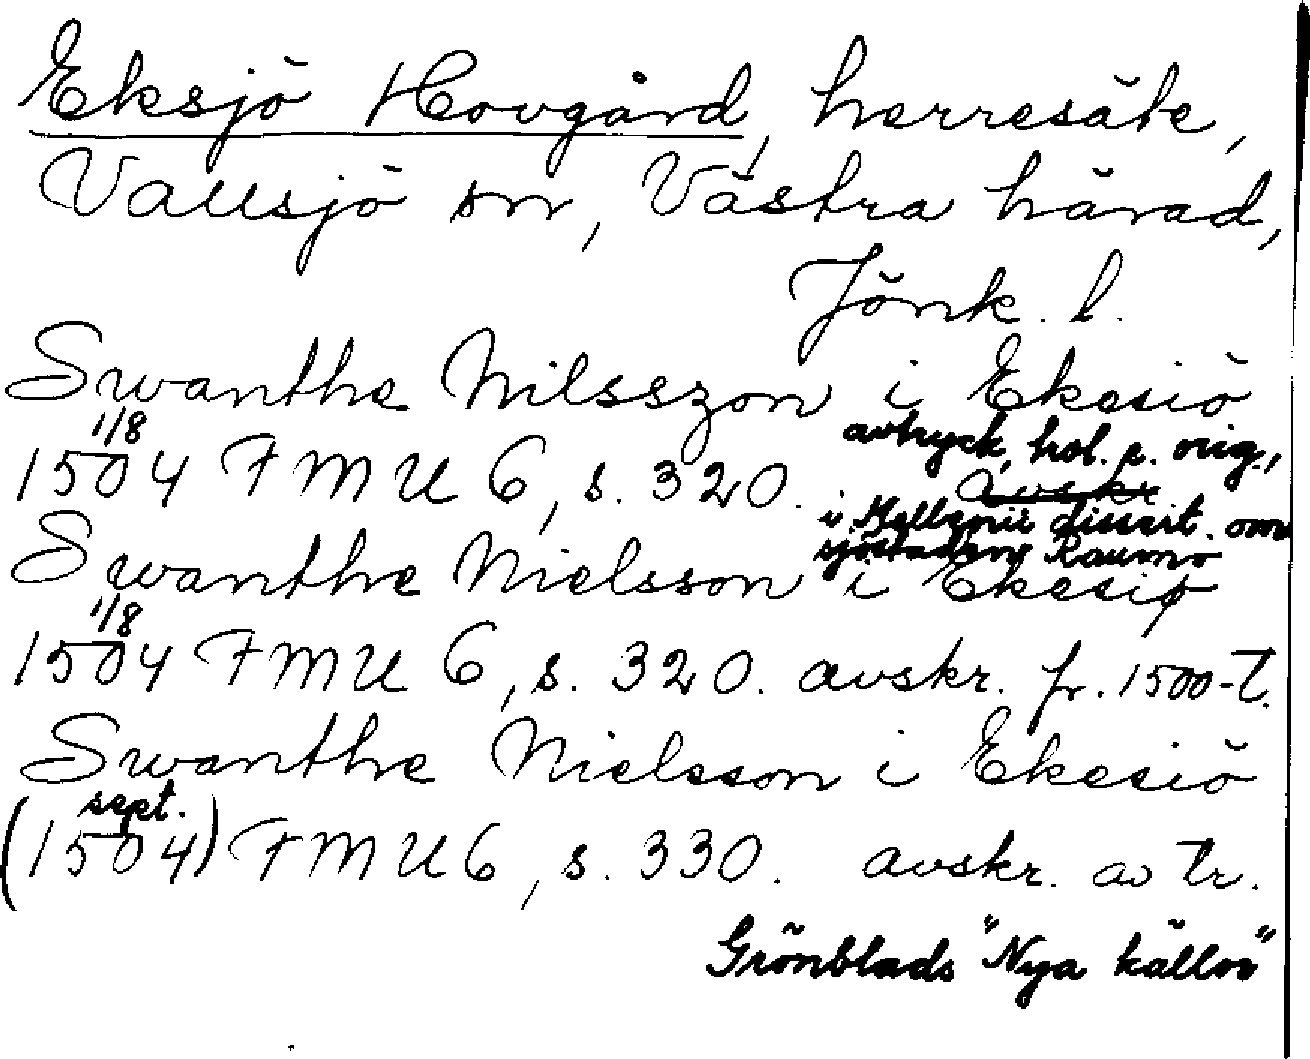 Eksjö Hovgård, herresäte,
Vallsjö sn, Västra härad,
Jönk. l.
Swanthe Nilsszon i Ekesiö
1/8
1504 FMU 6, s. 320. avtryck, hol. e. orig.,
avskr
i Hellenii dissert. om
sjöstaden Raumo
Swanthe Nielsson i Ekesiø
1/8
1504 FMU 6, s. 320. avskr. fr. 1500-t.
Swanthe Nielsson i Ekesiö
sept.
(1504) FMU 6, s. 330. avskr. av tr.
Grönblads "Nya källor"